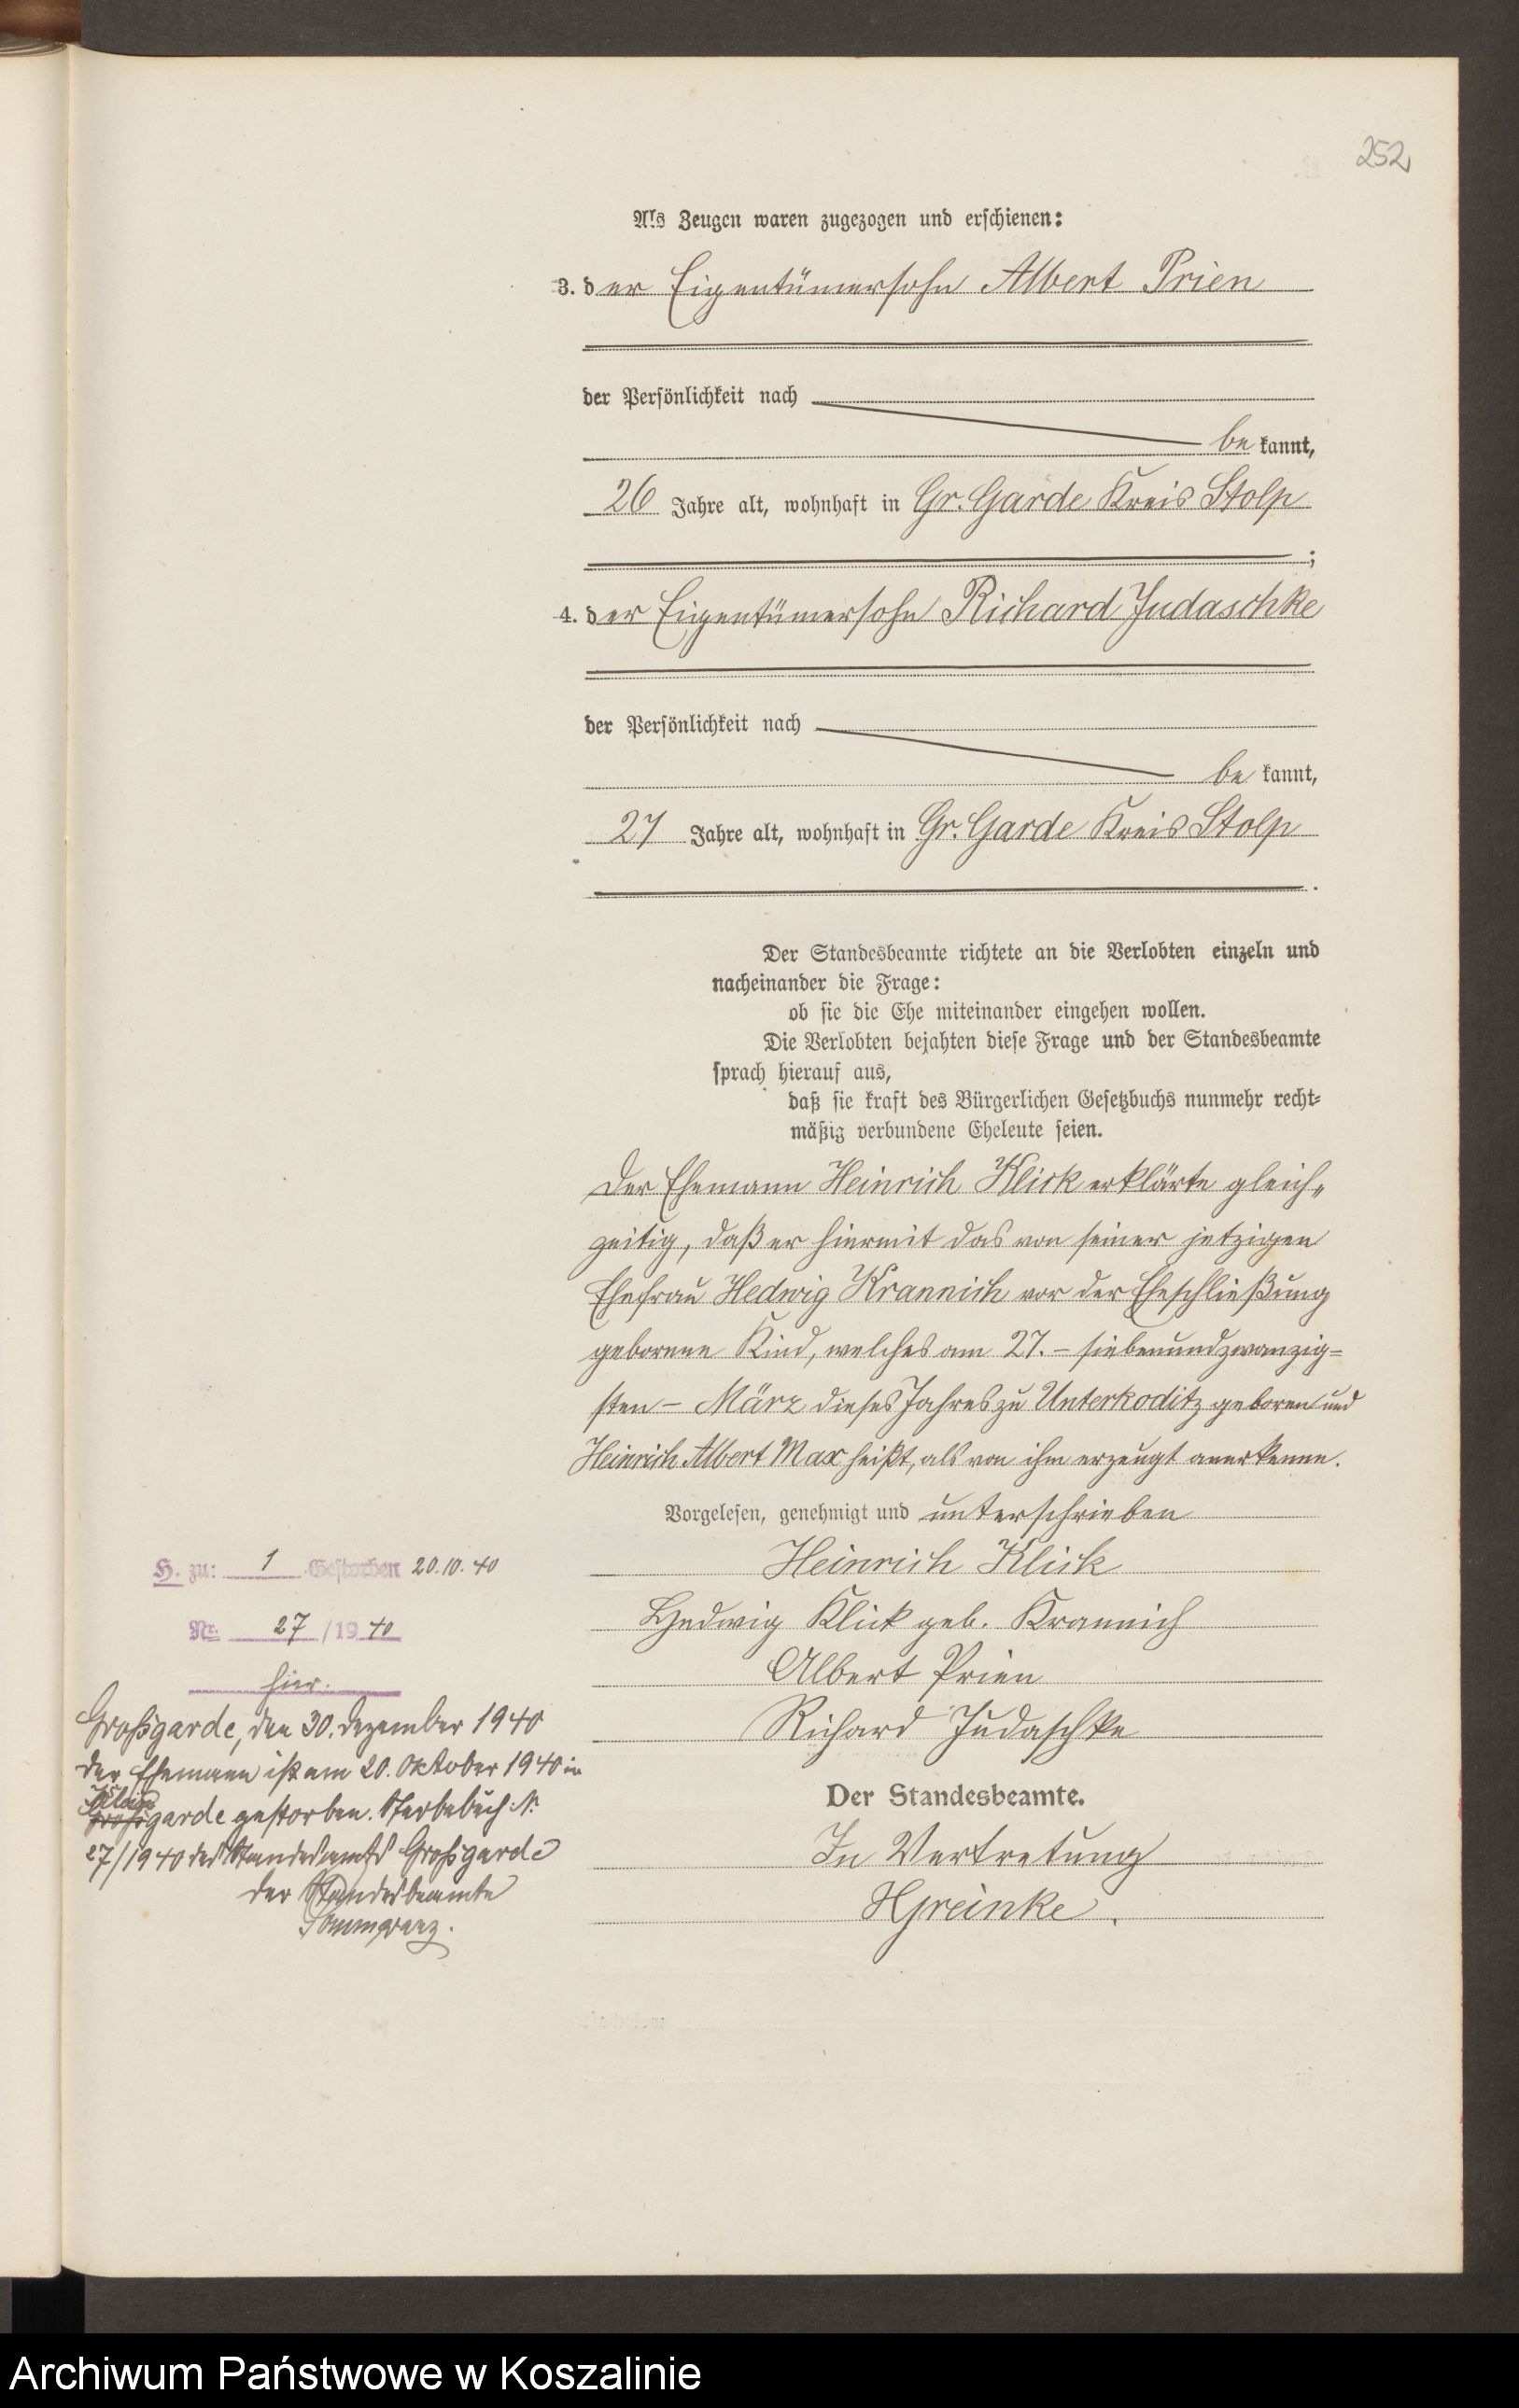 252
Als Zeugen waren zugezogen und erschienen:
3. der Eigentümersohn Albert Prien
der Persönlichkeit nach
bekannt,
26 Jahre alt, wohnhaft in Gr. Garde Kreis Stolp
;
4. der Eigentümersohn Richard Judaschke
der Persönlichkeit nach
bekannt,
27 Jahre alt, wohnhaft in Gr. Garde Kreis Stolp
.
Der Standesbeamte richtete an die Verlobten einzeln und
nacheinander die Frage:
ob sie die Ehe miteinander eingehen wollen.
Die Verlobten bejahten diese Frage und der Standesbeamte
sprach hierauf aus,
daß sie kraft des Bürgerlichen Gesetzbuchs nunmehr recht-
mäßig verbundene Eheleute seien.
Der Ehemann Heinrich Klick erklärte gleich„
zeitig, daß er hiermit das von seiner jetzigen
Ehefrau Hedwig Krannich vor der Eheschließung
geborene Kind, welches am 27. – siebenundzwanzig=
sten – März dieses Jahres zu Unterkoditz geboren und
Heinrich Albert Max heißt, als von ihm erzeugt anerkenne.
Vorgelesen, genehmigt und unterschrieben
Heinrich Klick
Hedwig Klick geb. Krannich
Albert Prien
Richard Judaschke
Der Standesbeamte.
In Vertretung
HGreinke.
H. zu: 1 Gestorben 20.10.40
Nr. 27/1940
hier.
Großgarde, den 30. Dezember 1940
Der Ehemann ist am 20. Oktober 1940 in
Klein
Großgarde gestorben. Sterbebuch Nr.
27/1940 des Standesamts Großgarde
Der Standesbeamte
Archiwum Państwowe w Koszalinie